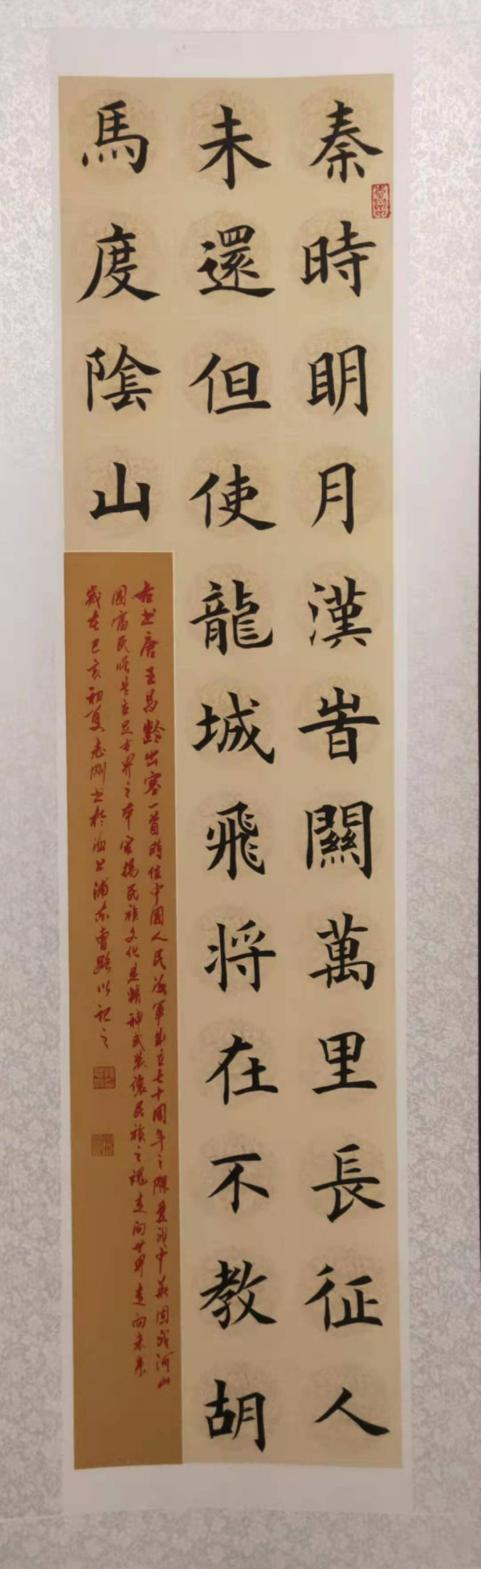 秦時明月漢時關萬里長征人
未還但使龍城飛将在不教胡
馬度陰山
右書唐王昌齡出塞一首時值中國人民海軍成立七十周年之際
國富民 是立足世界之本 民族文化是精神武裝 民族之魂走向世界走向未來
歲在己亥初夏志刚书於海上浦東曹路以記之